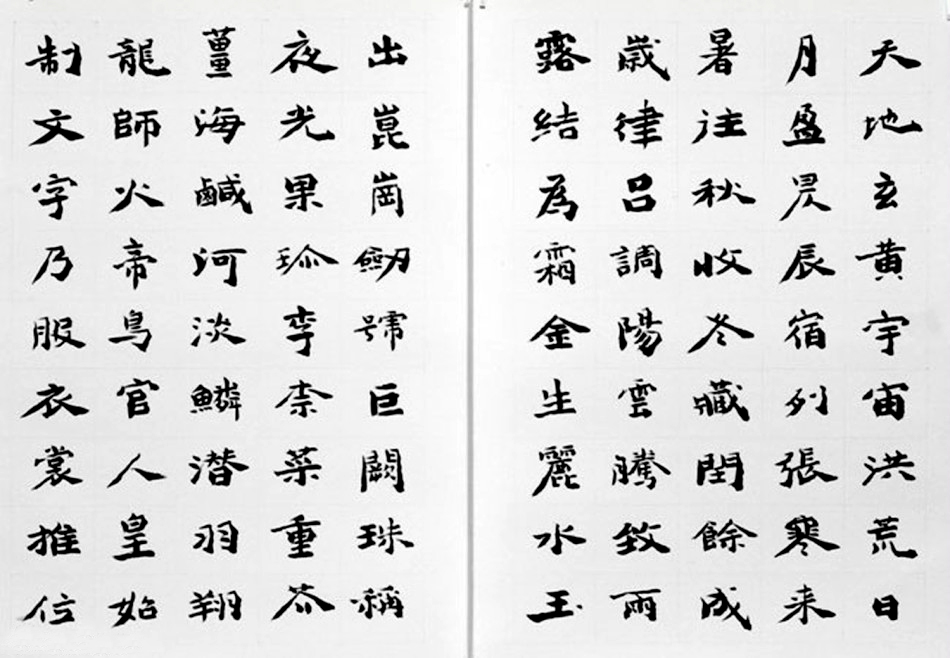 天地玄黄宇宙洪荒日
月盈昃辰宿列張寒来
暑往秋收冬藏閏餘成
歲律吕調陽雲騰致雨
露結為霜金生麗水玉
出崑崗劒號巨闕珠稱
夜光果珎李柰菜重芥
薑海鹹河淡鱗潜羽翔
龍師火帝鳥官人皇始
制文字乃服衣裳推位